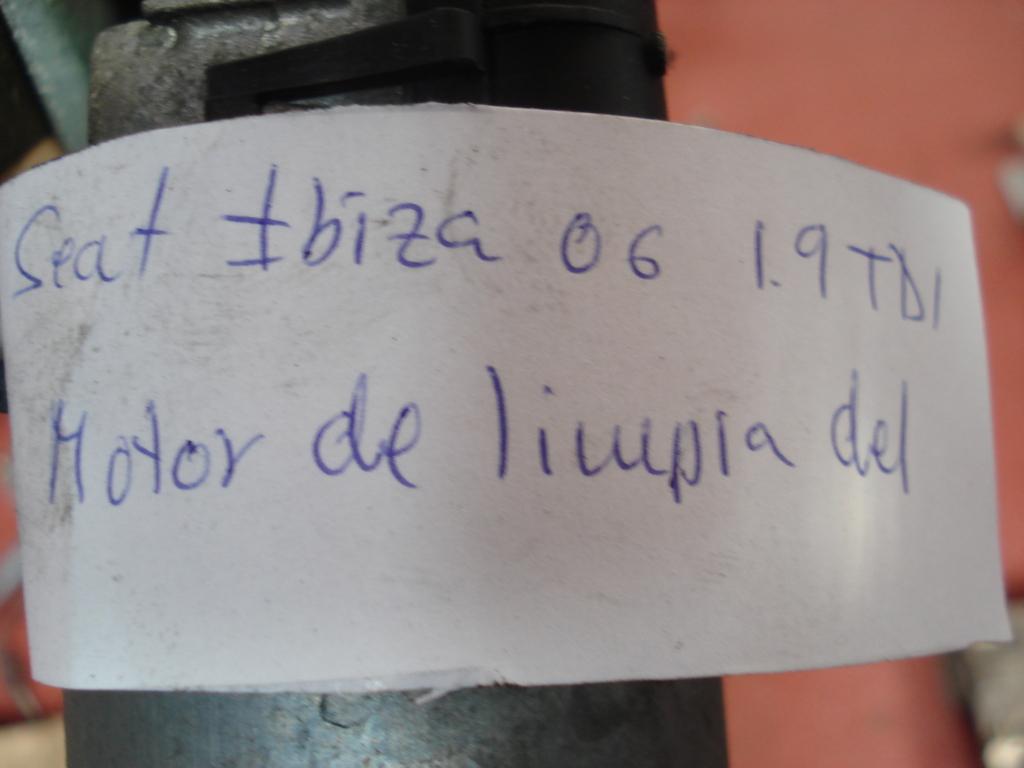 Seat Ibiza 06 1.9 TDI
Motor de limpia del